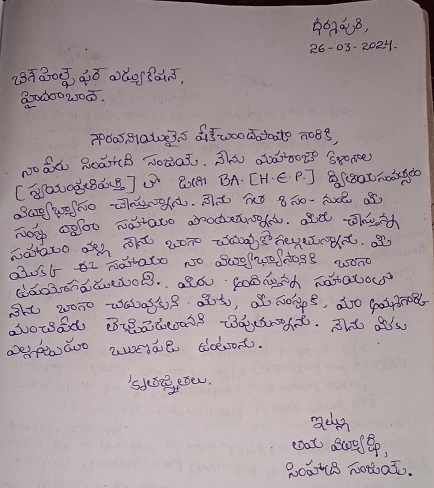 ధర్మపురి,
26-03-2024.
బిగ్ హెల్ప్ ఫర్ ఎడ్యుకేషన్,
హైదరాబాద్.
గౌరవనీయులైన షేక్ చాంద్ పాషా గారికి,
నా పేరు సింహాద్రి సంజయ్. నేను మహారాజా కళాశాల
[స్వయంప్రతిపత్తి] లో డిగ్రీ BA. [H.E.P.] ద్వితీయ సంవత్సరం
విద్యాభ్యాసం చేస్తున్నాను. నేను గత 8 సం- నుండి మీ
సంస్థ ద్వారా సహాయం పొందుతున్నాను. మీరు చేస్తున్న
సహాయం వల్ల నేను బాగా చదువుకో గల్గుతున్నాను. మీ
యొక్క ఈ సహాయం నా విద్యాభ్యాసానికి బాగా
ఉపయోగపడుతుంది. మీరు అందిస్తున్న సహాయంతో
నేను బాగా చదువుకుని మీకు, మీ సంస్థకి, మా
మంచిపేరు తెచ్చిపెడతానని చెప్పుతున్నాను. నేను మీకు
ఎల్లప్పుడూ ఋణపడి ఉంటాను.
కృతజ్ఞతలు.
ఇట్లు
తమ విద్యార్థి,
సింహాద్రి సంజయ్.